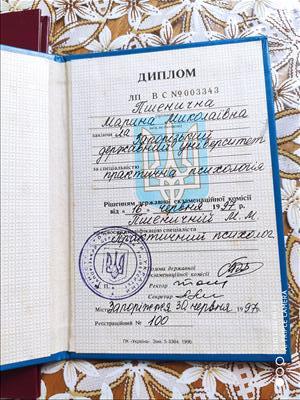 ДИПЛОМ
ЛП ВС №003343
Пшенична
Марина Миколаївна
закінчила Запорізький
державний університет
за спеціальністю
практична психологія
Рішенням державної екзаменаційної комісії
від «16» червня 1997 р.
Пшеничній М.М.
кваліфікацію спеціаліста
практичний психолог
Голова державної
екзаменаційної комісії
Ректор
Секретар
М. П.
Місто Запоріжжя 30 червня 1997р.
Реєстраційний № 100
ПК «Україна». Зам. 5-3304. 1996.
AI TRIPLE CAMERA